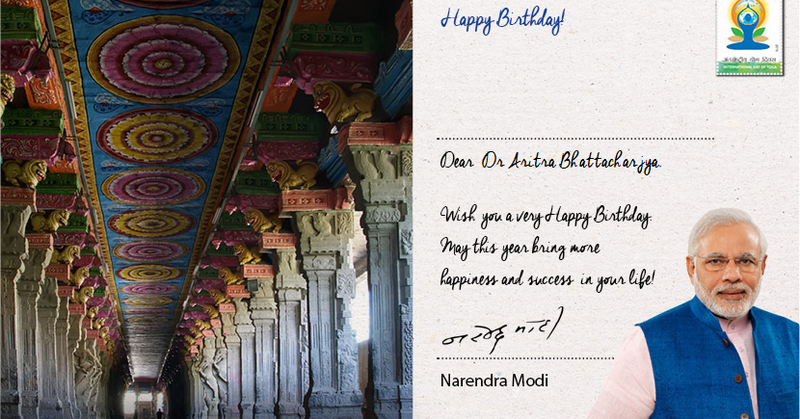 Happy Birthday!
INTERNATIONAL DAY OF YOGA
Dear Dr Aritra Bhattacharjya.
Wish you a very Happy Birthday.
May this year bring more
happiness and success in your life!
नरेन्द्र मोदी
Narendra Modi